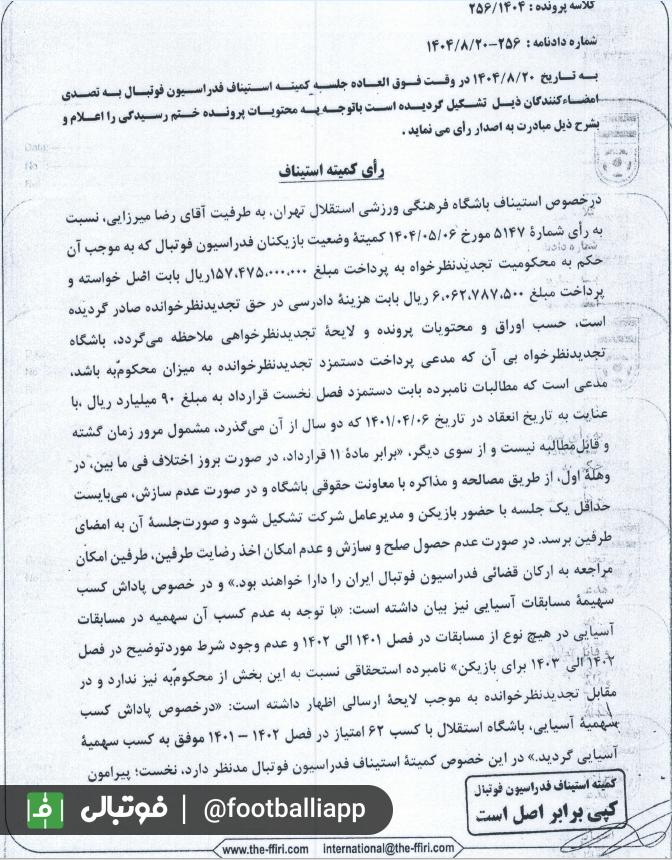 کلاسه پرونده : ۲۵۶/۱۴۰۴
شماره دادنامه : ۲۵۶-۱۴۰۴/۸/۲۰
به تاریخ ۱۴۰۴/۸/۲۰ در وقت فوق العاده جلسه کمیته استیناف فدراسیون فوتبال به تصدی
امضاءکنندگان ذیل تشکیل گردیده است باتوجه به محتویات پرونده ختم رسیدگی را اعلام و
بشرح ذیل مبادرت به اصدار رأی می نماید .
رأی کمیته استیناف
درخصوص استیناف باشگاه فرهنگی ورزشی استقلال تهران، به طرفیت آقای رضا میرزایی، نسبت
به رأی شمارهٔ ۵۱۴۷ مورخ ۱۴۰۴/۰۵/۰۶ کمیتهٔ وضعیت بازیکنان فدراسیون فوتبال که به موجب آن
حکم به محکومیت تجدیدنظرخواه به پرداخت مبلغ ۱۵۷،۴۷۵،۰۰۰،۰۰۰ریال بابت اصل خواسته و
پرداخت مبلغ ۶،۰۶۲،۷۸۷،۵۰۰ ریال بابت هزینهٔ دادرسی در حق تجدیدنظرخوانده صادر گردیده
است، حسب اوراق و محتویات پرونده و لایحهٔ تجدیدنظرخواهی ملاحظه می‌گردد، باشگاه
تجدیدنظرخواه بی آن که مدعی پرداخت دستمزد تجدیدنظرخوانده به میزان محکوم‌ٌبه باشد،
مدعی است که مطالبات نامبرده بابت دستمزد فصل نخست قرارداد به مبلغ ۹۰ میلیارد ریال ،با
عنایت به تاریخ انعقاد در تاریخ ۱۴۰۱/۰۴/۰۶ که دو سال از آن می‌گذرد، مشمول مرور زمان گشته
و قابل‌مطالبه نیست و از سوی دیگر، «برابر مادهٔ ۱۱ قرارداد، در صورت بروز اختلاف فی ما بین، در
وهلهٔ اول، از طریق مصالحه و مذاکره با معاونت حقوقی باشگاه و در صورت عدم سازش، می‌بایست
حداقل یک جلسه با حضور بازیکن و مدیرعامل شرکت تشکیل شود و صورت‌جلسهٔ آن به امضای
طرفین برسد. در صورت عدم حصول صلح و سازش و عدم امکان اخذ رضایت طرفین، طرفین امکان
مراجعه به ارکان قضائی فدراسیون فوتبال ایران را دارا خواهند بود.» و در خصوص پاداش کسب
سهیمهٔ مسابقات آسیایی نیز بیان داشته است: «با توجه به عدم کسب آن سهمیه در مسابقات
آسیایی در هیچ نوع از مسابقات در فصل ۱۴۰۱ الی ۱۴۰۲ و عدم وجود شرط موردتوضیح در فصل
۱۴۰۲ الی ۱۴۰۳ برای بازیکن» نامبرده استحقاقی نسبت به این بخش از محکوم‌ٌبه نیز ندارد و در
مقابل تجدیدنظرخوانده به موجب لایحهٔ ارسالی اظهار داشته است: «درخصوص پاداش کسب
سهمیهٔ آسیایی، باشگاه استقلال با کسب ۶۲ امتیاز در فصل ۱۴۰۲ – ۱۴۰۱ موفق به کسب سهمیهٔ
آسیایی گردید.» در این خصوص کمیتهٔ استیناف فدراسیون فوتبال مدنظر دارد، نخست؛ پیرامون
کمیته استیناف فدراسیون فوتبال
کپی برابر اصل است
فوتبالی | @footballiapp
www.the-ffiri.com international@the-ffiri.com